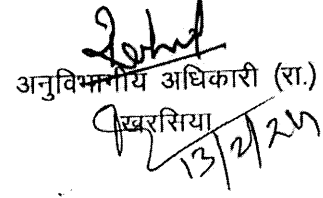 अनुविभागीय अधिकारी (रा.)
खरसिया
13/2/25